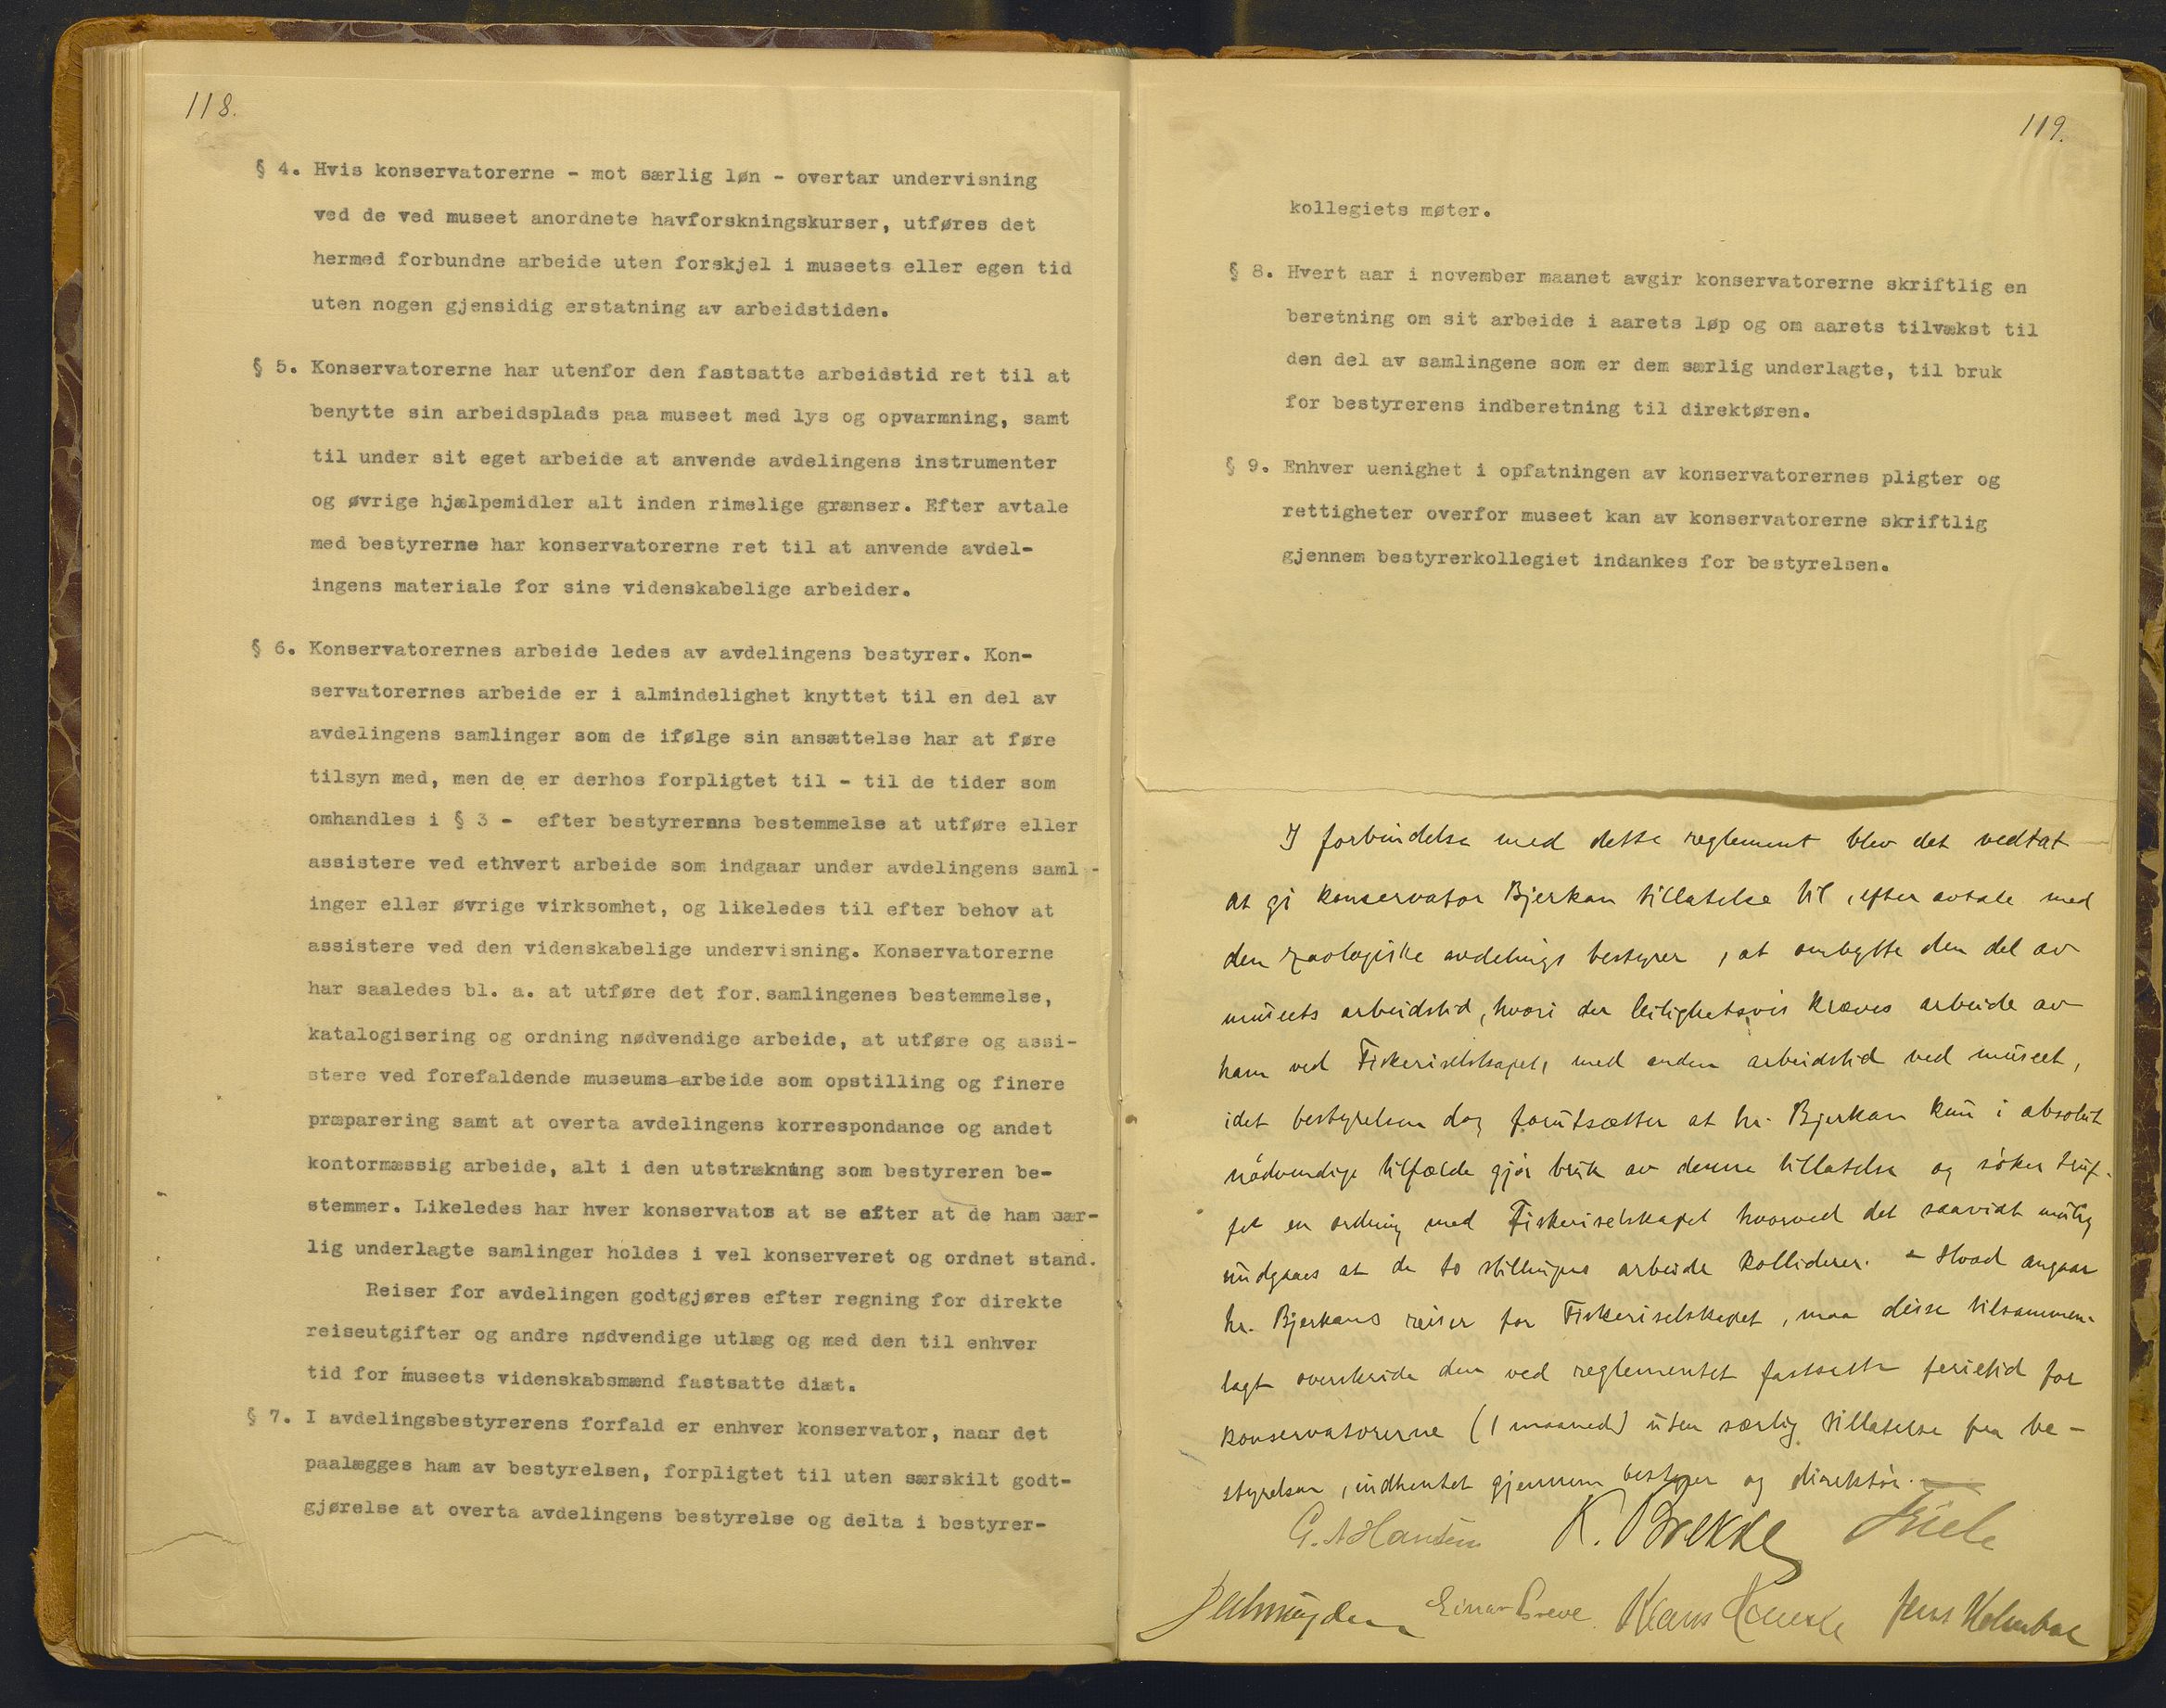 118.
§ 4. Hvis konservatorerne - mot særlig løn - overtar undervisning
ved de ved museet anordnete havforskningskurser, utføres det
hermed forbundne arbeide uten forskjel i museets eller egen tid
uten nogen gjensidig erstatning av arbeidstiden.
§ 5. Konservatorerne har utenfor den fastsatte arbeidstid ret til at
benytte sin arbeidsplads paa museet med lys og opvarmning, samt
til under sit eget arbeide at anvende avdelingens instrumenter
og øvrige hjælpemidler alt inden rimelige grænser. Efter avtale
med bestyrerne har konservatorerne ret til at anvende avdel-
ingens materiale for sine videnskabelige arbeider.
§ 6. Konservatorernes arbeide ledes av avdelingens bestyrer. Kon-
servatorernes arbeide er i almindelighet knyttet til en del av
avdelingens samlinger som de ifølge sin ansættelse har at føre
tilsyn med, men de er derhos forpligtet til - til de tider som
omhandles i § 3 - efter bestyrerens bestemmelse at utføre eller
assistere ved ethvert arbeide som indgaar under avdelingens saml-
inger eller øvrige virksomhet, og likeledes til efter behov at
assistere ved den videnskabelige undervisning. Konservatorerne
har saaledes bl. a. at utføre det for samlingenes bestemmelse,
katalogisering og ordning nødvendige arbeide, at utføre og assi-
stere ved forefaldende museums-arbeide som opstilling og finere
præparering samt at overta avdelingens korrespondance og andet
kontormæssig arbeide, alt i den utstrækning som bestyreren be-
stemmer. Likeledes har hver konservator at se efter at de ham sær-
lig underlagte samlinger holdes i vel konserveret og ordnet stand.
Reiser for avdelingen godtgjøres efter regning for direkte
reiseutgifter og andre nødvendige utlæg og med den til enhver
tid for museets videnskabsmænd fastsatte diæt.
§ 7. I avdelingsbestyrerens forfald er enhver konservator, naar det
paalægges ham av bestyrelsen, forpligtet til uten særskilt godt-
gjørelse at overta avdelingens bestyrelse og delta i bestyrer-
119.
kollegiets møter.
§ 8. Hvert aar i november maanet avgir konservatorerne skriftlig en
beretning om sit arbeide i aarets løp og om aarets tilvækst til
den del av samlingene som er dem særlig underlagte, til bruk
for bestyrerens indberetning til direktøren.
§ 9. Enhver uenighet i opfatningen av konservatorernes pligter og
rettigheter overfor museet kan av konservatorerne skriftlig
gjennem bestyrerkollegiet indankes for bestyrelsen.
I forbindelse med dette reglement blev det vedtat
at gi konservator Bjerkan tillatelse til, efter avtale med
den zoologiske avdelings bestyrer, at ombytte den del av
museets arbeidstid, hvori der leilighetsvis kræves arbeide av
ham ved Fiskeriselskapet, med anden arbeidstid ved museet,
idet bestyrelsen dog forutsætter at hr. Bjerkan kun i absolut
nödvendige tilfælde gjör bruk av denne tillatelse og söker truf-
fet en ordning med Fiskeriselskapet hvorved det saavidt mulig
undgaaes at de to stillingers arbeide kolliderer. - Hvad angaar
hr. Bjerkans reiser for Fiskeriselskapet, maa disse tilsammen-
lagt overskride den ved reglementet fastsatte ferietid for
konservatorerne (1 maaned) uten særlig tillatelse fra be-
styrelsen, indhentet gjennem bestyrer og direktör.
G. A Hansen K. Brekke Friele
Einar Greve Jens Holmboe